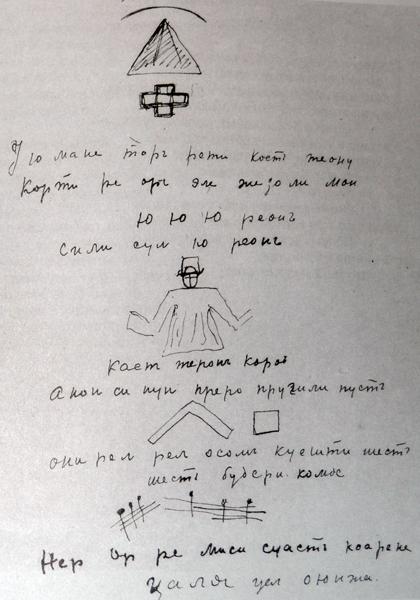 Ую мане торъ рети кость теону
Корти ре оръ эм жедо ли мои
Ю Ю Ю реонъ
Сили сул ю реонъ
каст теронъ коро
Анои си пуп преро пружили пусть
они рел рел осомъ куешти шесть
шесть будери. комос
Нер ор ре миси сиасть коарене
цаля цел оюнжи.